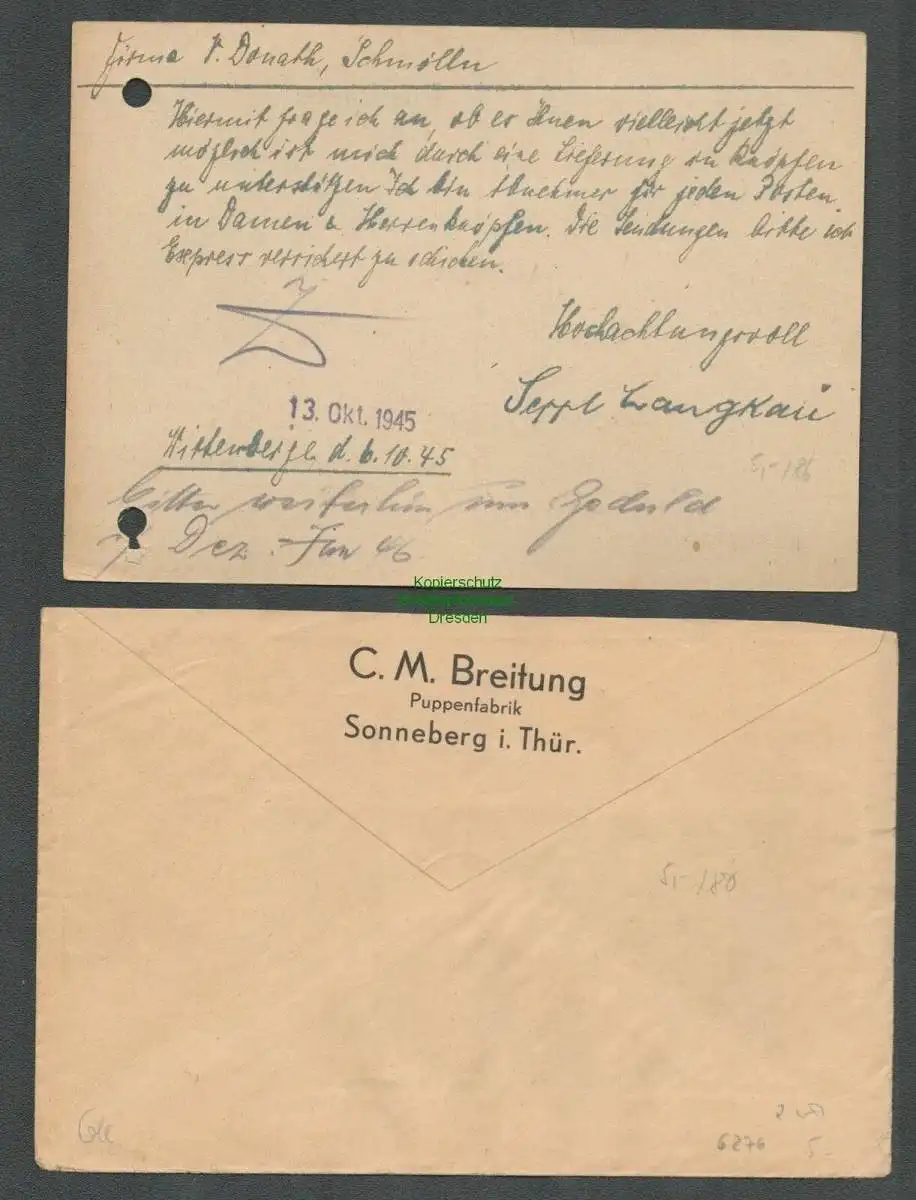 Firma P. Donath, Schmölln
Hiermit frage ich an, ob es Ihnen vielleicht jetzt
möglich ist mich durch eine Lieferung in Knöpfen
zu unterstützen Ich bin Abnehmer für jeden Posten
in Damen u Herrenknöpfen. Die Sendungen bitte ich
Express versichert zu schicken.
Hochachtungsvoll
Seppl Langkau
13. Okt. 1945
Wittenberge, d. 6.10.45
bitten weiterhin um Geduld
Dez. - Jan 46
5,-/86
Kopierschutz
Dresden
C. M. Breitung
Puppenfabrik
Sonneberg i. Thür.
5,-/80
6276
5.-